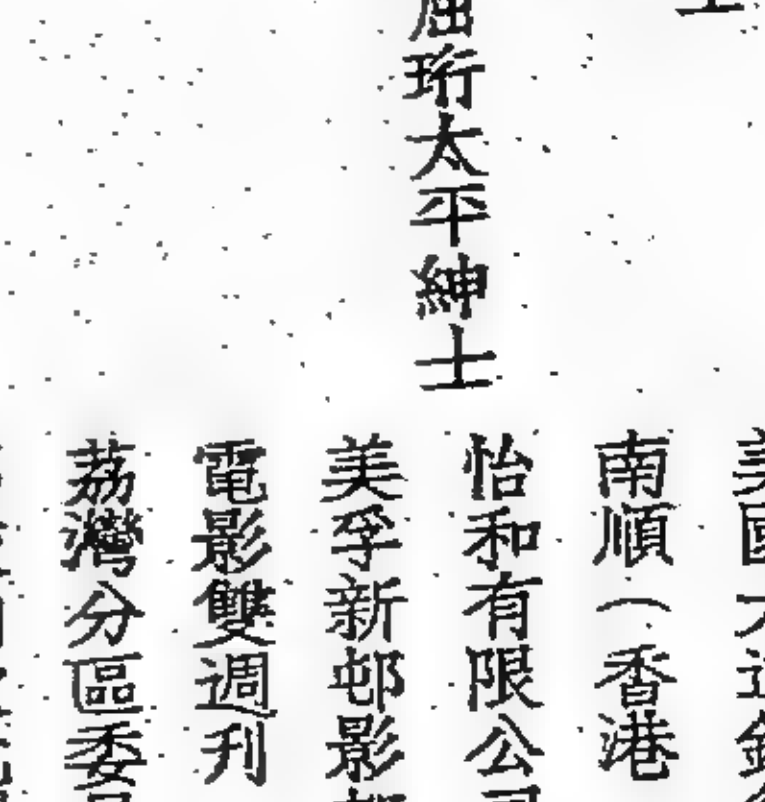 珩太平紳士
南順（香港
怡和有限公司
美孚新邨影
電影雙週刊
荔灣分區委員